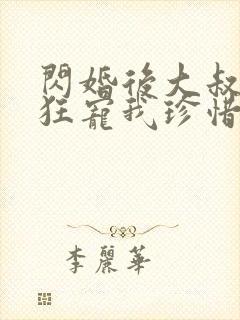 閃婚後大叔
狂寵我珍惜
李麗華